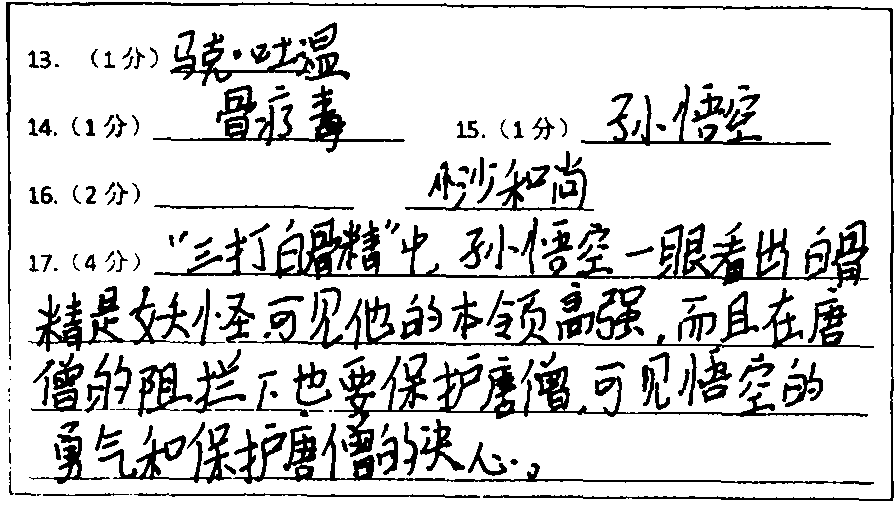 13. （1分）马克·吐温
14.（1分）骨疗毒 15.（1分）孙悟空
16.（2分） 沙和尚
17.（4分）“三打白骨精”中，孙悟空一眼看出白骨
精是妖怪可见他的本领高强，而且在唐
僧的阻拦下也要保护唐僧，可见悟空的
勇气和保护唐僧的决心。